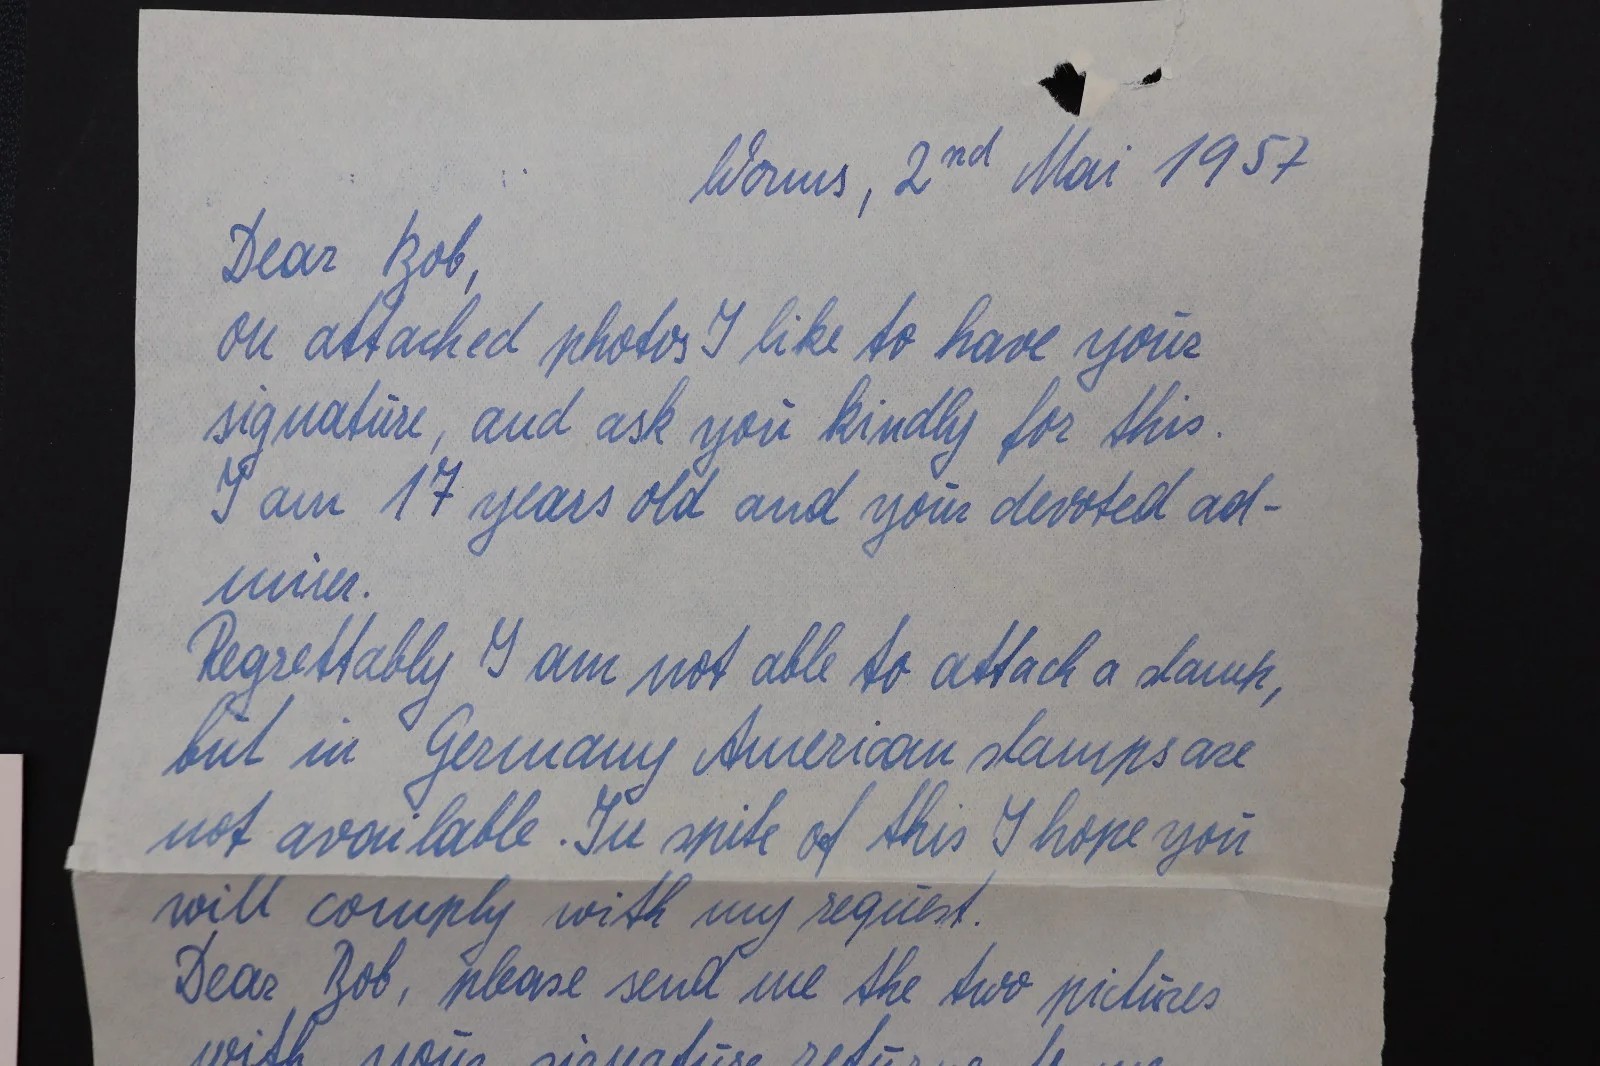 Worms, 2nd Mai 1957
Dear Bob,
on attached photos I like to have your
signature, and ask you kindly for this.
I am 17 years old and your devoted ad-
mirer.
Regrettably I am not able to attach a stamp,
but in Germany American stamps are
not available. In spite of this I hope you
will comply with my request.
Dear Bob, please send me the two pictures
with your signature to me